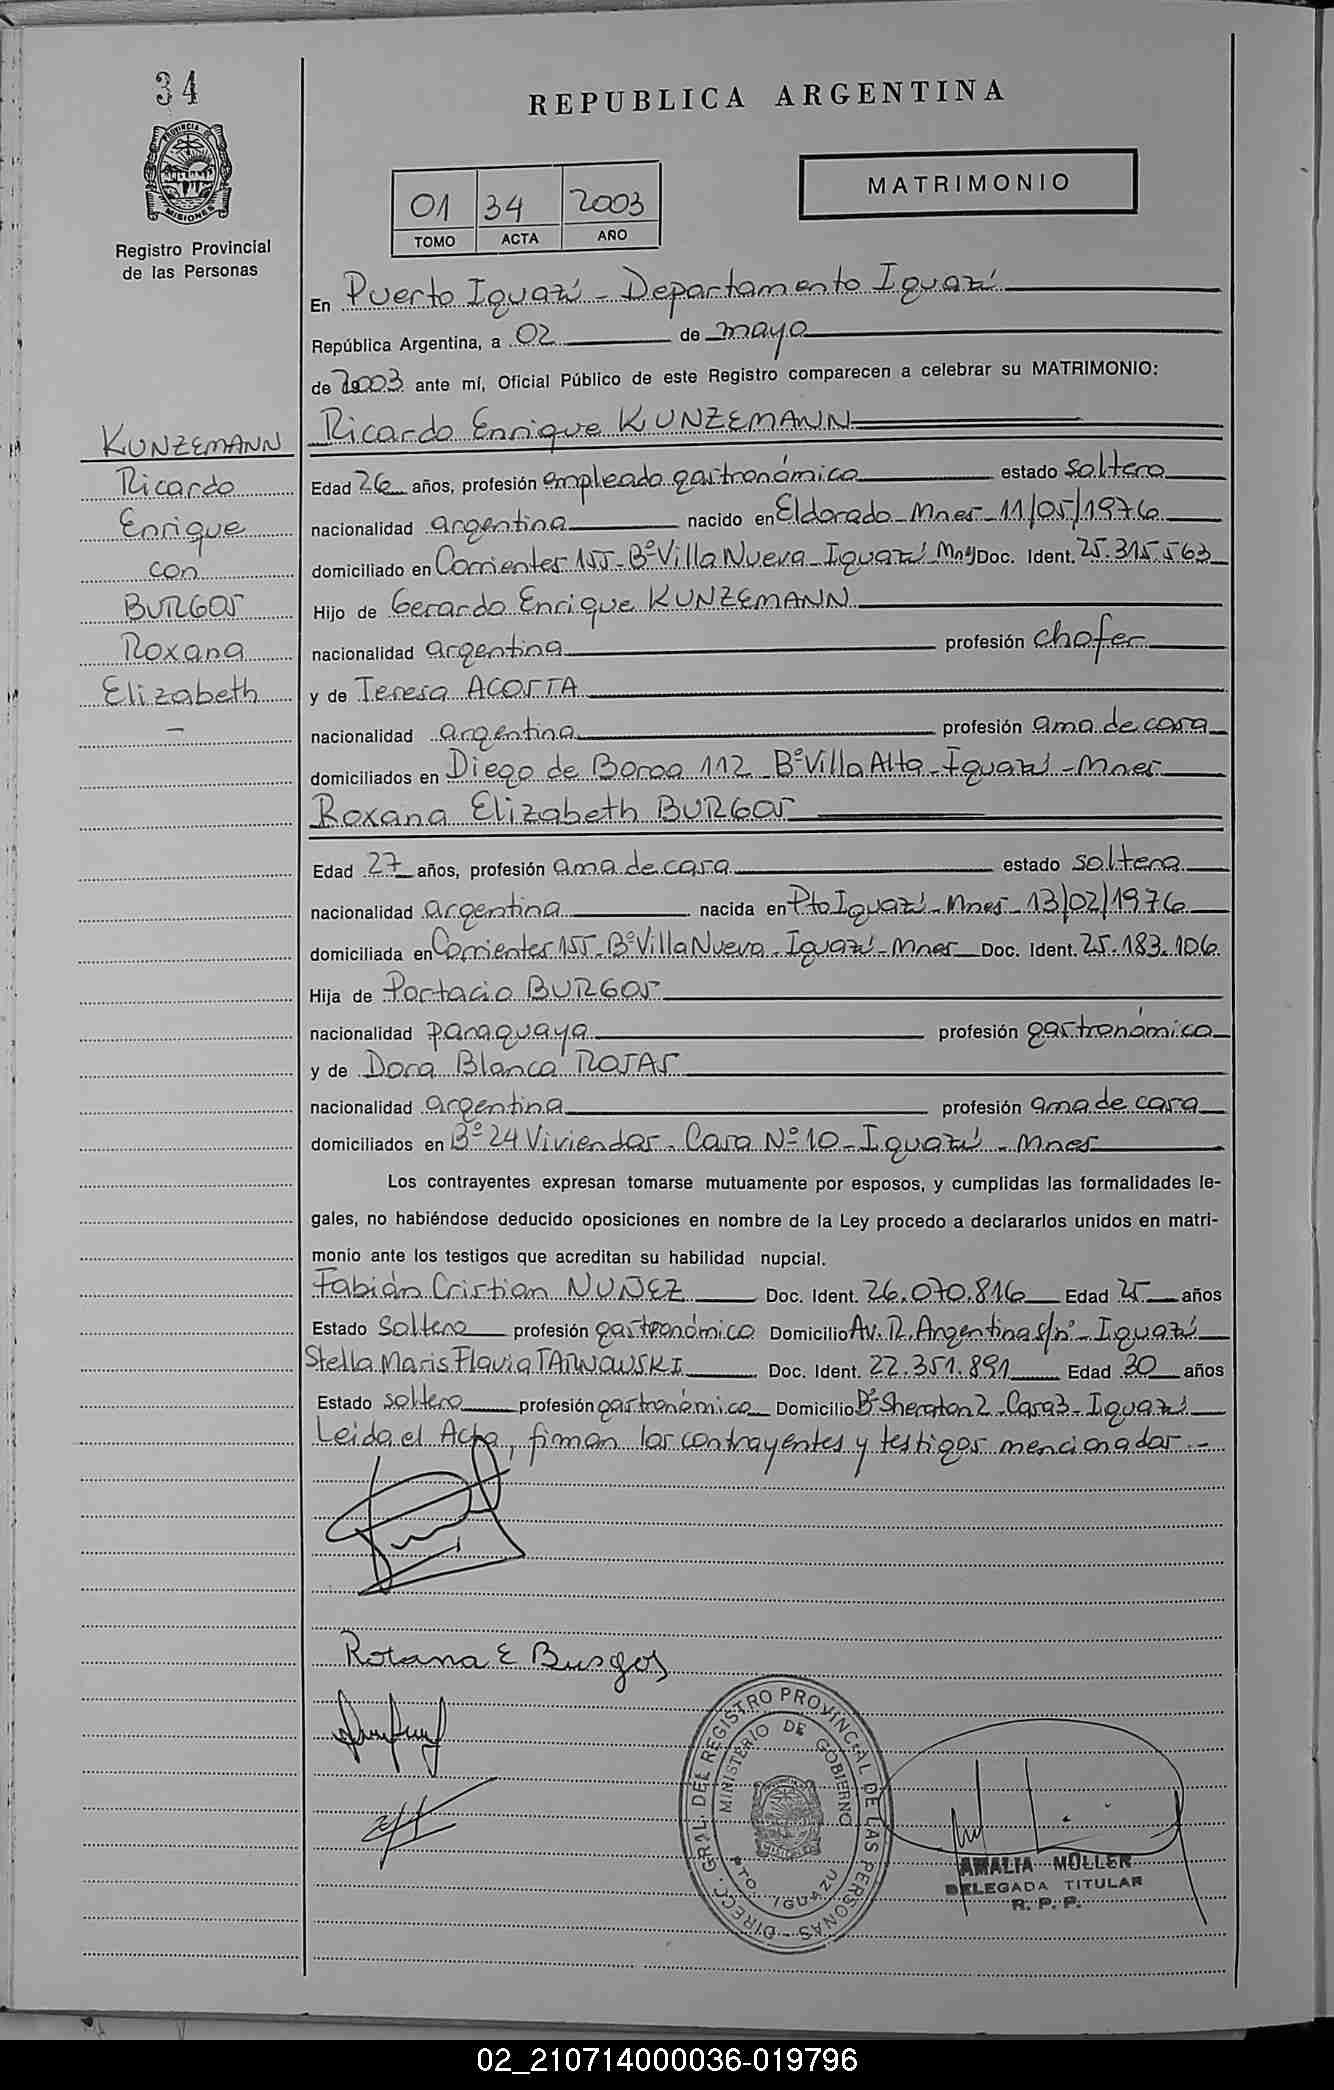 34
PROVINCIA DE
MISIONES
Registro Provincial
de las Personas
REPUBLICA ARGENTINA
MATRIMONIO
01 34 2003
TOMO ACTA AÑO
En Puerto Iguazú - Departamento Iguazú
República Argentina, a 02 de mayo
de 2003 ante mí, Oficial Público de este Registro comparecen a celebrar su MATRIMONIO:
KUNZEMANN
Ricardo
Enrique
con
BURGOS
Roxana
Elizabeth
-
Ricardo Enrique KUNZEMANN
Edad 26 años, profesión empleado gastronómico estado soltero
nacionalidad argentina nacido en Eldorado - Mnes - 11/05/1976
domiciliado en Corrientes 155 - Bº Villa Nueva - Iguazú Mns Doc. Ident. 25.315.563
Hijo de Gerardo Enrique KUNZEMANN
nacionalidad argentina profesión chofer
y de Teresa ACOSTA
nacionalidad argentina profesión ama de casa
domiciliados en Diego de Boroa 112 Bº Villa Alta - Iguazú - Mnes
Roxana Elizabeth BURGOS
Edad 27 años, profesión ama de casa estado soltera
nacionalidad argentina nacida en Pto Iguazú - Mnes - 13/02/1976
domiciliada en Corrientes 155 - Bº Villa Nueva - Iguazú - Mnes Doc. Ident. 25.183.106
Hija de Portacio BURGOS
nacionalidad paraguaya profesión gastronómico
y de Dora Blanca ROJAS
nacionalidad argentina profesión ama de casa
domiciliados en Bº 24 Viviendas - Casa Nº 10 - Iguazú - Mnes
Los contrayentes expresan tomarse mutuamente por esposos, y cumplidas las formalidades le-
gales, no habiéndose deducido oposiciones en nombre de la Ley procedo a declararlos unidos en matri-
monio ante los testigos que acreditan su habilidad nupcial.
Fabián Cristian NUÑEZ Doc. Ident. 26.070.816 Edad 25 años
Estado Soltero profesión gastronómico Domicilio Av. R. Argentina s/nº - Iguazú
Stella Maris Flavia TARNOWSKI Doc. Ident. 22.351.891 Edad 30 años
Estado soltera profesión gastronómica Domicilio Bº Sheraton 2 - Casa 3 - Iguazú
Leida el Acta, firman los contrayentes y testigos mencionados.-
Roxana E Burgos
DIRECC. GRAL. DEL REGISTRO PROVINCIAL DE LAS PERSONAS -
MINISTERIO DE GOBIERNO
PTO. IGUAZU
AMALIA MÖLLER
DELEGADA TITULAR
R. P. P.
02_210714000036-019796